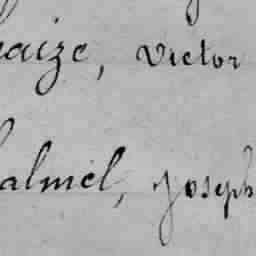 aize, Victor
almel, Joseph